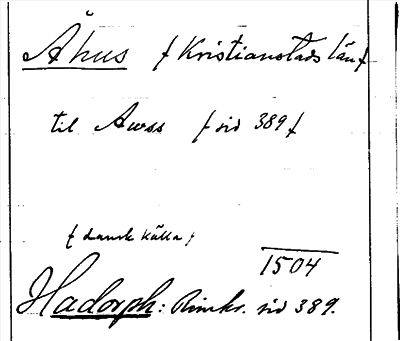 Åhus / Kristianstads län /
til Awss / sid 389 /
/ dansk källa /
1504
Hadorph: Rimkr. sid 389.